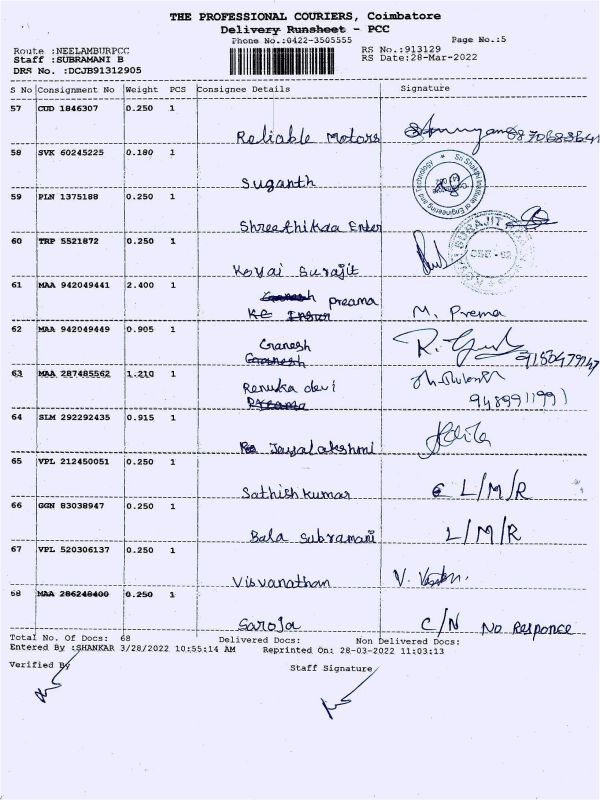 THE PROFESSIONAL COURIERS, Coimbatore
Delivery Runsheet - PCC
Phone No.:0422-3505555 Page No.:5
Route :NEELAMBURPCC RS No.:913129
Staff :SUBRAMANI B RS Date:28-Mar-2022
DRS No. :DCJB91312905
S No Consignment No Weight PCS Consignee Details Signature
57 CUD 1846307 0.250 1
Reliable Motors
58 SVK 60245225 0.180 1
Suganth
59 PLN 1375188 0.250 1
Shreethikaa Enter
60 TRP 5521872 0.250 1
Kovai Surajit
61 MAA 942049441 2.400 1
preama
M. Prema
62 MAA 942049449 0.905 1
Ganesh
63 MAA 287485562 1.210 1
Renuka devi
9489911991
64 SLM 292292435 0.915 1
Jayalakshmi
65 VPL 212450051 0.250 1
Sathish kumar L/M/R
66 GGN 83038947 0.250 1
Bala Subramani L/M/R
67 VPL 520306137 0.250 1
Visvanathan V.
68 MAA 286248400 0.250 1
Saroja C/N No Responce
Total No. Of Docs: 68 Delivered Docs: Non Delivered Docs:
Entered By :SHANKAR 3/28/2022 10:55:14 AM Reprinted On: 28-03-2022 11:03:13
Verified By Staff Signature